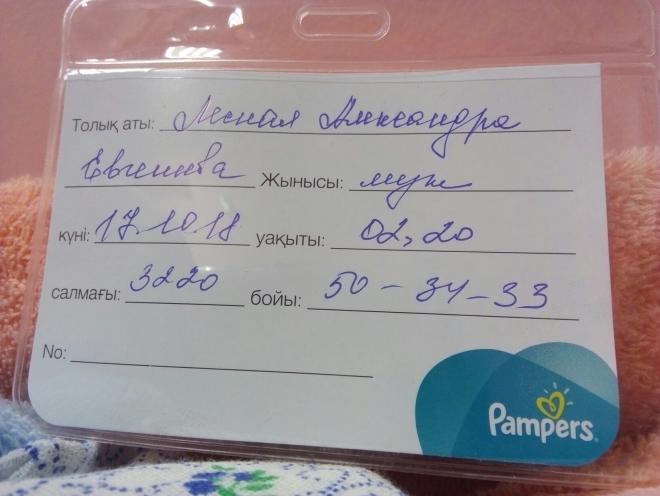 Толық аты: Лесная Александра
Евгеньева Жынысы: муж
күні: 17.10.18 уақыты: 02,20
салмағы: 3220 бойы: 50-34-33
No:
Pampers